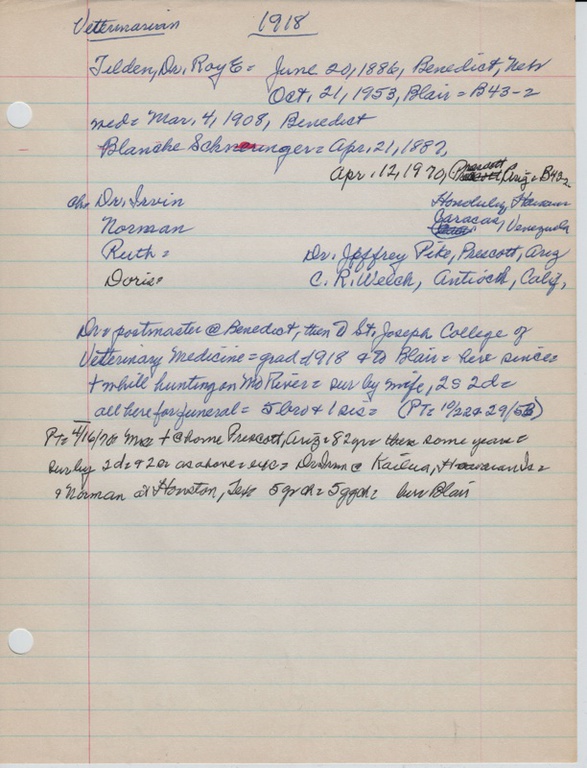 Veterinarian 1918
Tilden, Dr. Roy E = June 20, 1886, Benedict, Neb
Oct. 21, 1953, Blair = B43-2
med = Mar. 4, 1908, Benedict
Blanche = Apr. 21, 1887,
Apr. 12, 1970, Prescott, Ariz = B43-2
ch = Dr. Irvin Honolulu, Hawaii
Norman Caracas, Venezuela
Ruth = Dr. Jeffrey Pike, Prescott, Ariz
Doris = C. R. Welch, Antioch, Calif,
Dr = postmaster @ Benedict, then to St. Joseph College of
Veterinary Medicine = grad 1918 & to Blair = here since =
+ while hunting on Mo River = sur by wife, 2s 2d =
all here for funeral = 5 bro & 1 sis = (PT = 10/22 & 29/53)
PT = 4/16/70 Mrs + @ home Prescott, Ariz = 82 yr = there some years =
sur by 2d = & 2s as above = exc = Dr Irvin @ Kailua, Hawaiian Is =
& Norman at Houston, Tex 5 gr ch = 5 ggch = bur Blair